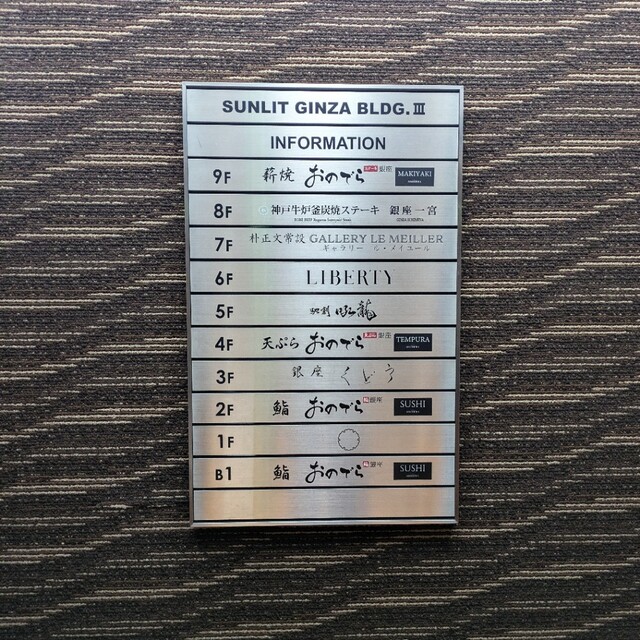 SUNLIT GINZA BLDG. Ⅲ
INFORMATION
9F 薪焼 おのでら 銀座 MAKIYAKI
8F 神戸牛炉釜炭焼ステーキ 銀座一宮
7F 朴正文常設 GALLERY LE MEILLER
ギャラリー ル・メイユール
6F LIBERTY
5F 龍
4F 天ぷら おのでら 銀座 TEMPURA
3F 銀座 くどう
2F 鮨 おのでら 銀座 SUSHI
1F
B1 鮨 おのでら 銀座 SUSHI